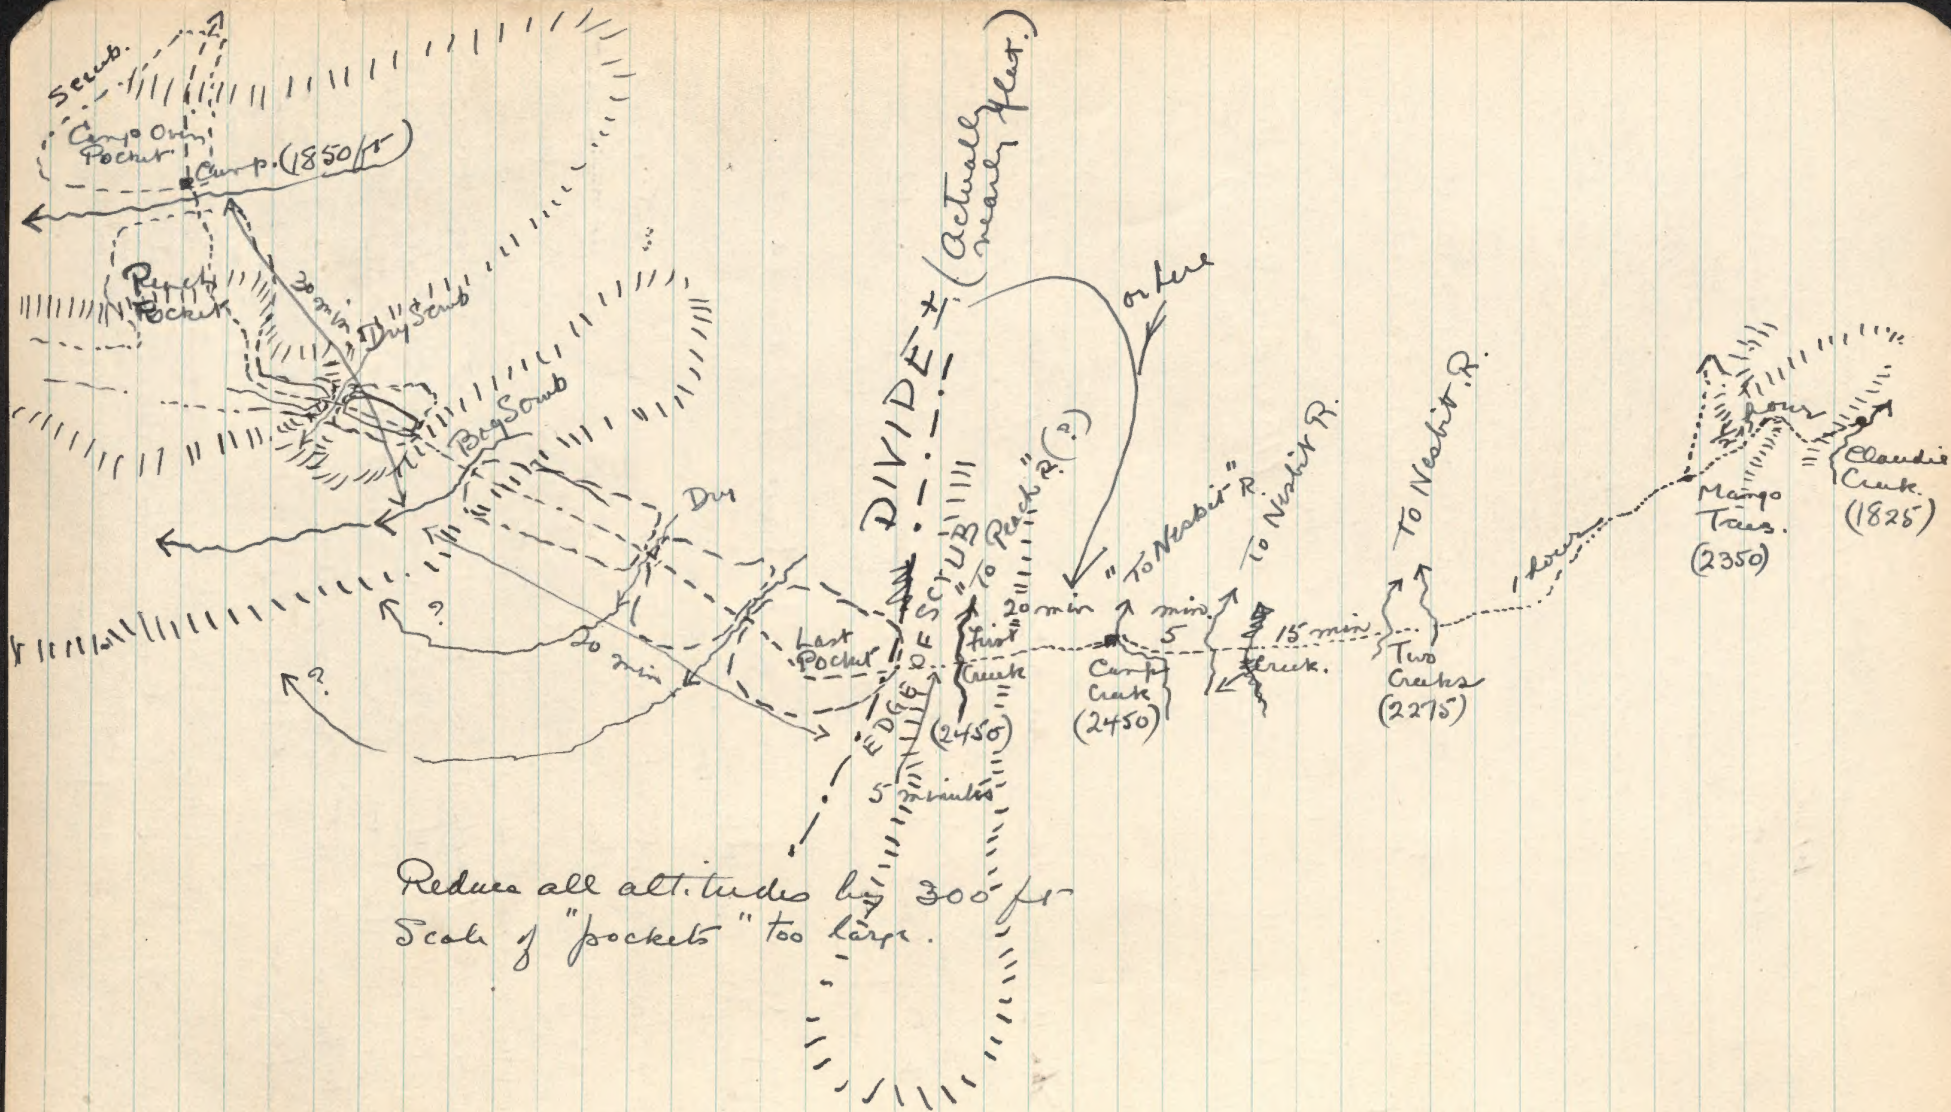 Scrub.
Camp Oven
Pocket
Camp. (1850 ft)
Peach
Pocket
30 min
"Dry" Scrub
Big Scrub
Dry
?
?
20
min
Last
Pocket
DIVIDE ±
(Actually
nearly flat.)
or here
EDGE OF SCRUB
"To Peach" R. (?)
First
Creek
(2450)
5 minutes
20 min
"To Nesbit" R.
Camp
Creek
(2450)
5 min.
To Nesbit R.
Creek.
15 min
To Nesbit R.
Two
Creeks
(2275)
1 hour
Mango
Trees.
(2350)
hour
Claudie
Creek.
(1825)
Reduce all altitudes by 300 ft
Scale of "pockets" too large.